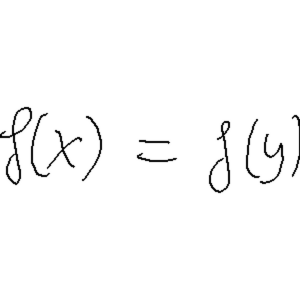 f(x) = f(y)